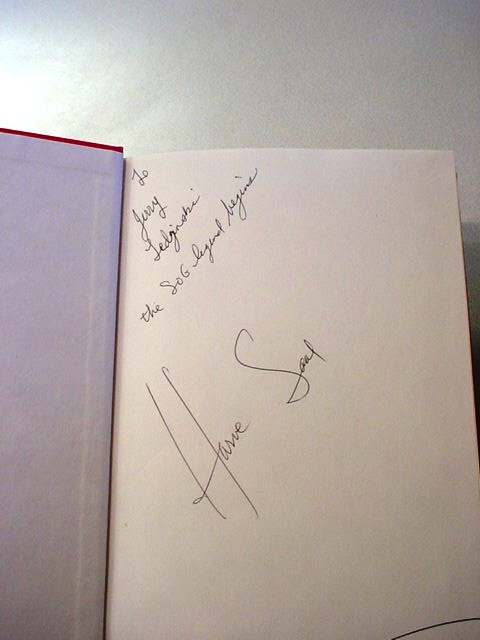 To
Jerry
Ledzinski
the SOG legend begins
Harve Saal